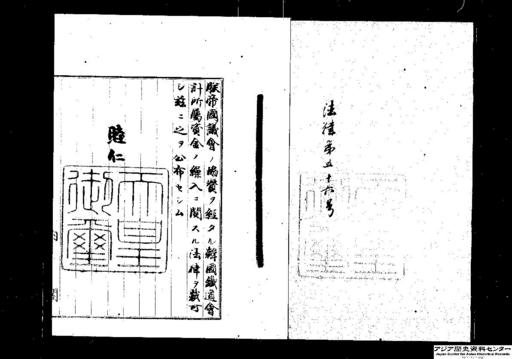 法律第五十六号
朕帝國議會ノ協賛ヲ經タル韓國鐵道會
計所屬資金ノ繰入ニ關スル法律ヲ裁可
シ茲ニ之ヲ公布セシム
睦仁
天皇
御璽
内閣
アジア歴史資料センター
Japan Center for Asian Historical Records